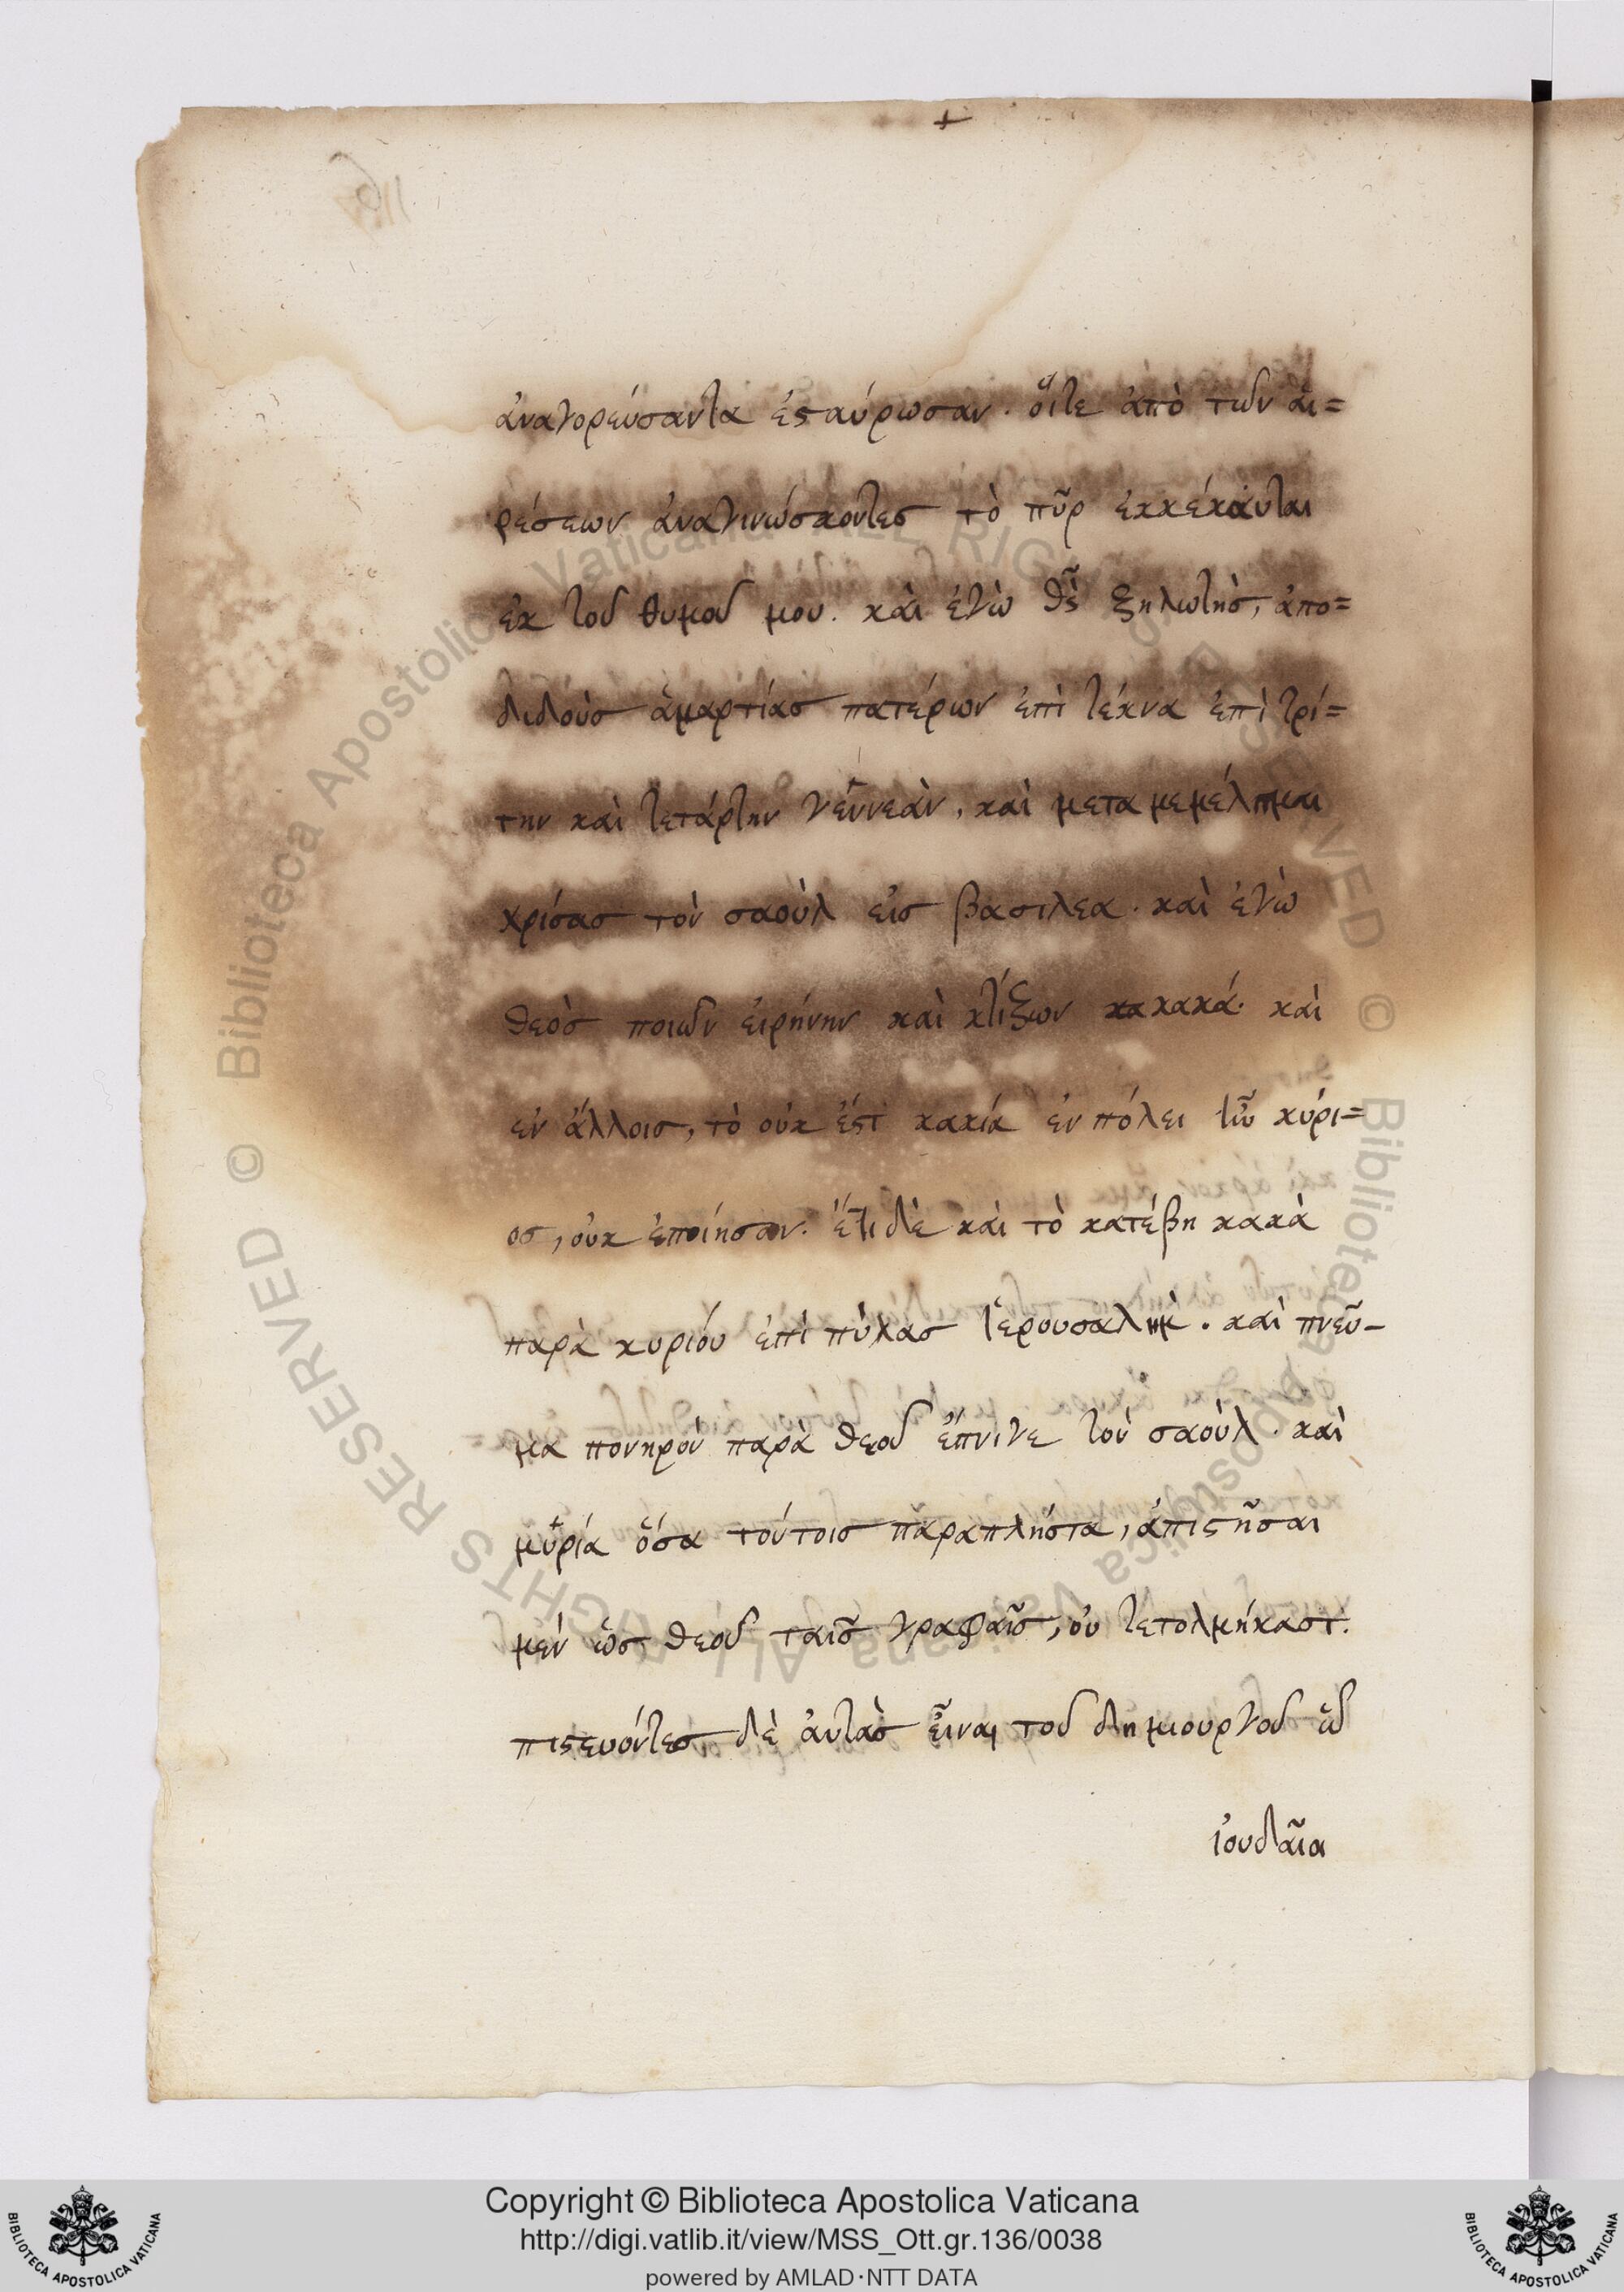 ἀναγορεύσαντα ἐσταύρωσαν. ὅιτε ἀπὸ τῶν ἁι=
ρέσεων ἀναγινώσκοντες τὸ πῦρ ἐκκέκαυται
ἐκ τοῦ θυμοῦ μου. καὶ ἐγὼ θς ζηλωτὴς, ἀπο=
διδοὺς ἁμαρτίας πατέρων ἐπὶ τέκνα ἐπὶ τρί=
την καὶ τετάρτην γεννεὰν, καὶ μεταμεμέλημαι
χρίσας τὸν σαοὺλ εἰς βασιλεα. καὶ ἐγὼ
θεὸς ποιῶν εἰρήνην καὶ κτίζων κακακά. καὶ
ἐν ἄλλοις, τὸ οὐκ ἔστι κακία ἐν πόλει ἣν κύρι=
ος, οὐκ ἐποίησαν. ἔτι δὲ καὶ τὸ κατέβη κακὰ
παρὰ κυριόυ ἐπὶ πύλας Ἱερουσαλημ. καὶ πνεῦ-
μα πονηρὸν παρὰ θεοῦ ἔπνιγε τὸν σαοὺλ. καὶ
μυρία ὅσα τούτοις παραπλήσια, ἀπιστῆσαι
μὲν ὡς θεοῦ ταῖς γραφαῖς, οὐ τετολμήκασι.
πιστευόντες δὲ ἀυτὰς εἶναι τοῦ δημιουργοῦ ᾧ
ἰουδαῖα
Copyright © Biblioteca Apostolica Vaticana
http://digi.vatlib.it/view/MSS_Ott.gr.136/0038
powered by AMLAD·NTT DATA
BIBLIOTECA APOSTOLICA VATICANA
BIBLIOTECA APOSTOLICA VATICANA
© Biblioteca Apostolica Vaticana ALL RIGHTS RESERVED © Biblioteca Apostolica Vaticana ALL RIGHTS RESERVED